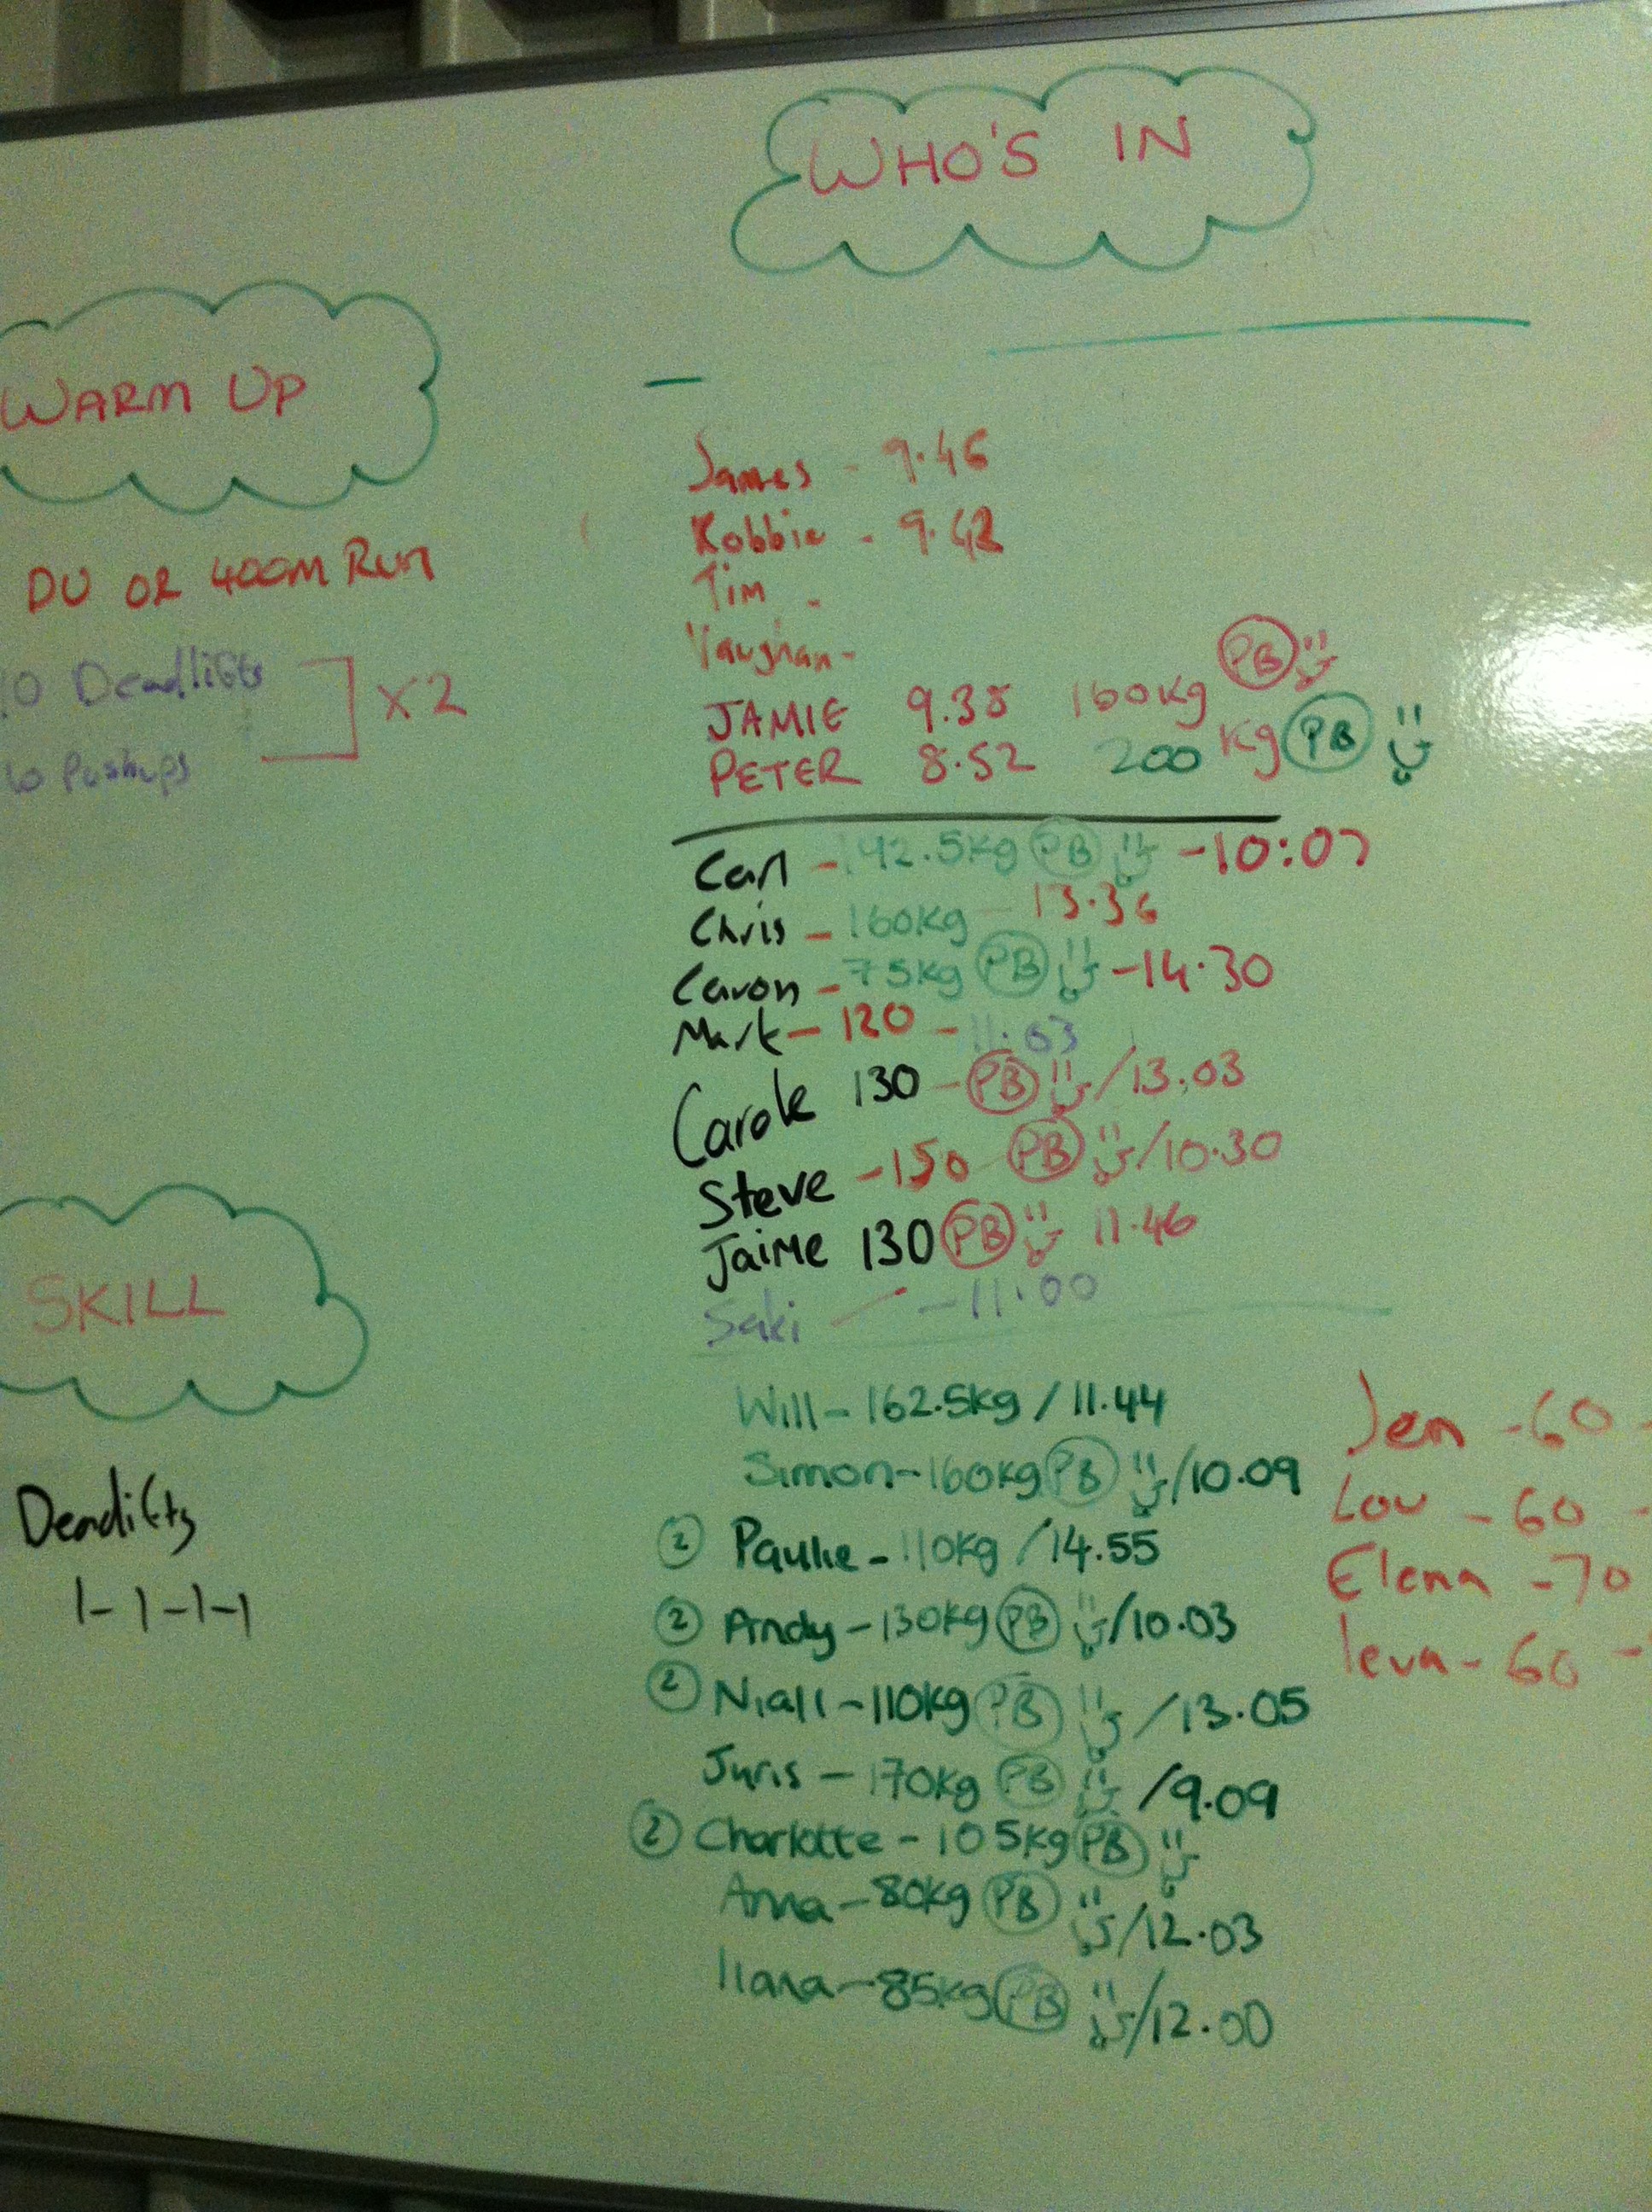 WHO'S IN
WARM UP
DU OR 400M RUN
10 Deadlifts
10 Pushups
X2
James - 9.46
Robbie - 9.42
Tim -
Vaughan -
JAMIE 9.38 160kg PB
PETER 8.52 200 kg PB
Carl - 142.5kg PB - 10:07
Chris - 160kg - 13.36
Caron - 75kg PB - 14.30
Mark - 120 - 11.03
Carole 130 - PB / 13.03
Steve - 150 PB / 10.30
Jaime 130 PB 11.46
Saki - 11.00
SKILL
Deadlifts
1-1-1-1
Will - 162.5kg / 11.44
Simon - 160kg PB / 10.09
2 Paulie - 110kg / 14.55
2 Andy - 130kg PB / 10.03
2 Niall - 110kg PB / 13.05
Juris - 170kg PB / 9.09
2 Charlotte - 105kg PB
Anna - 80kg PB / 12.03
Ilana - 85kg PB / 12.00
Jen - 60 -
Lou - 60 -
Elena - 70
Ieva - 60 -